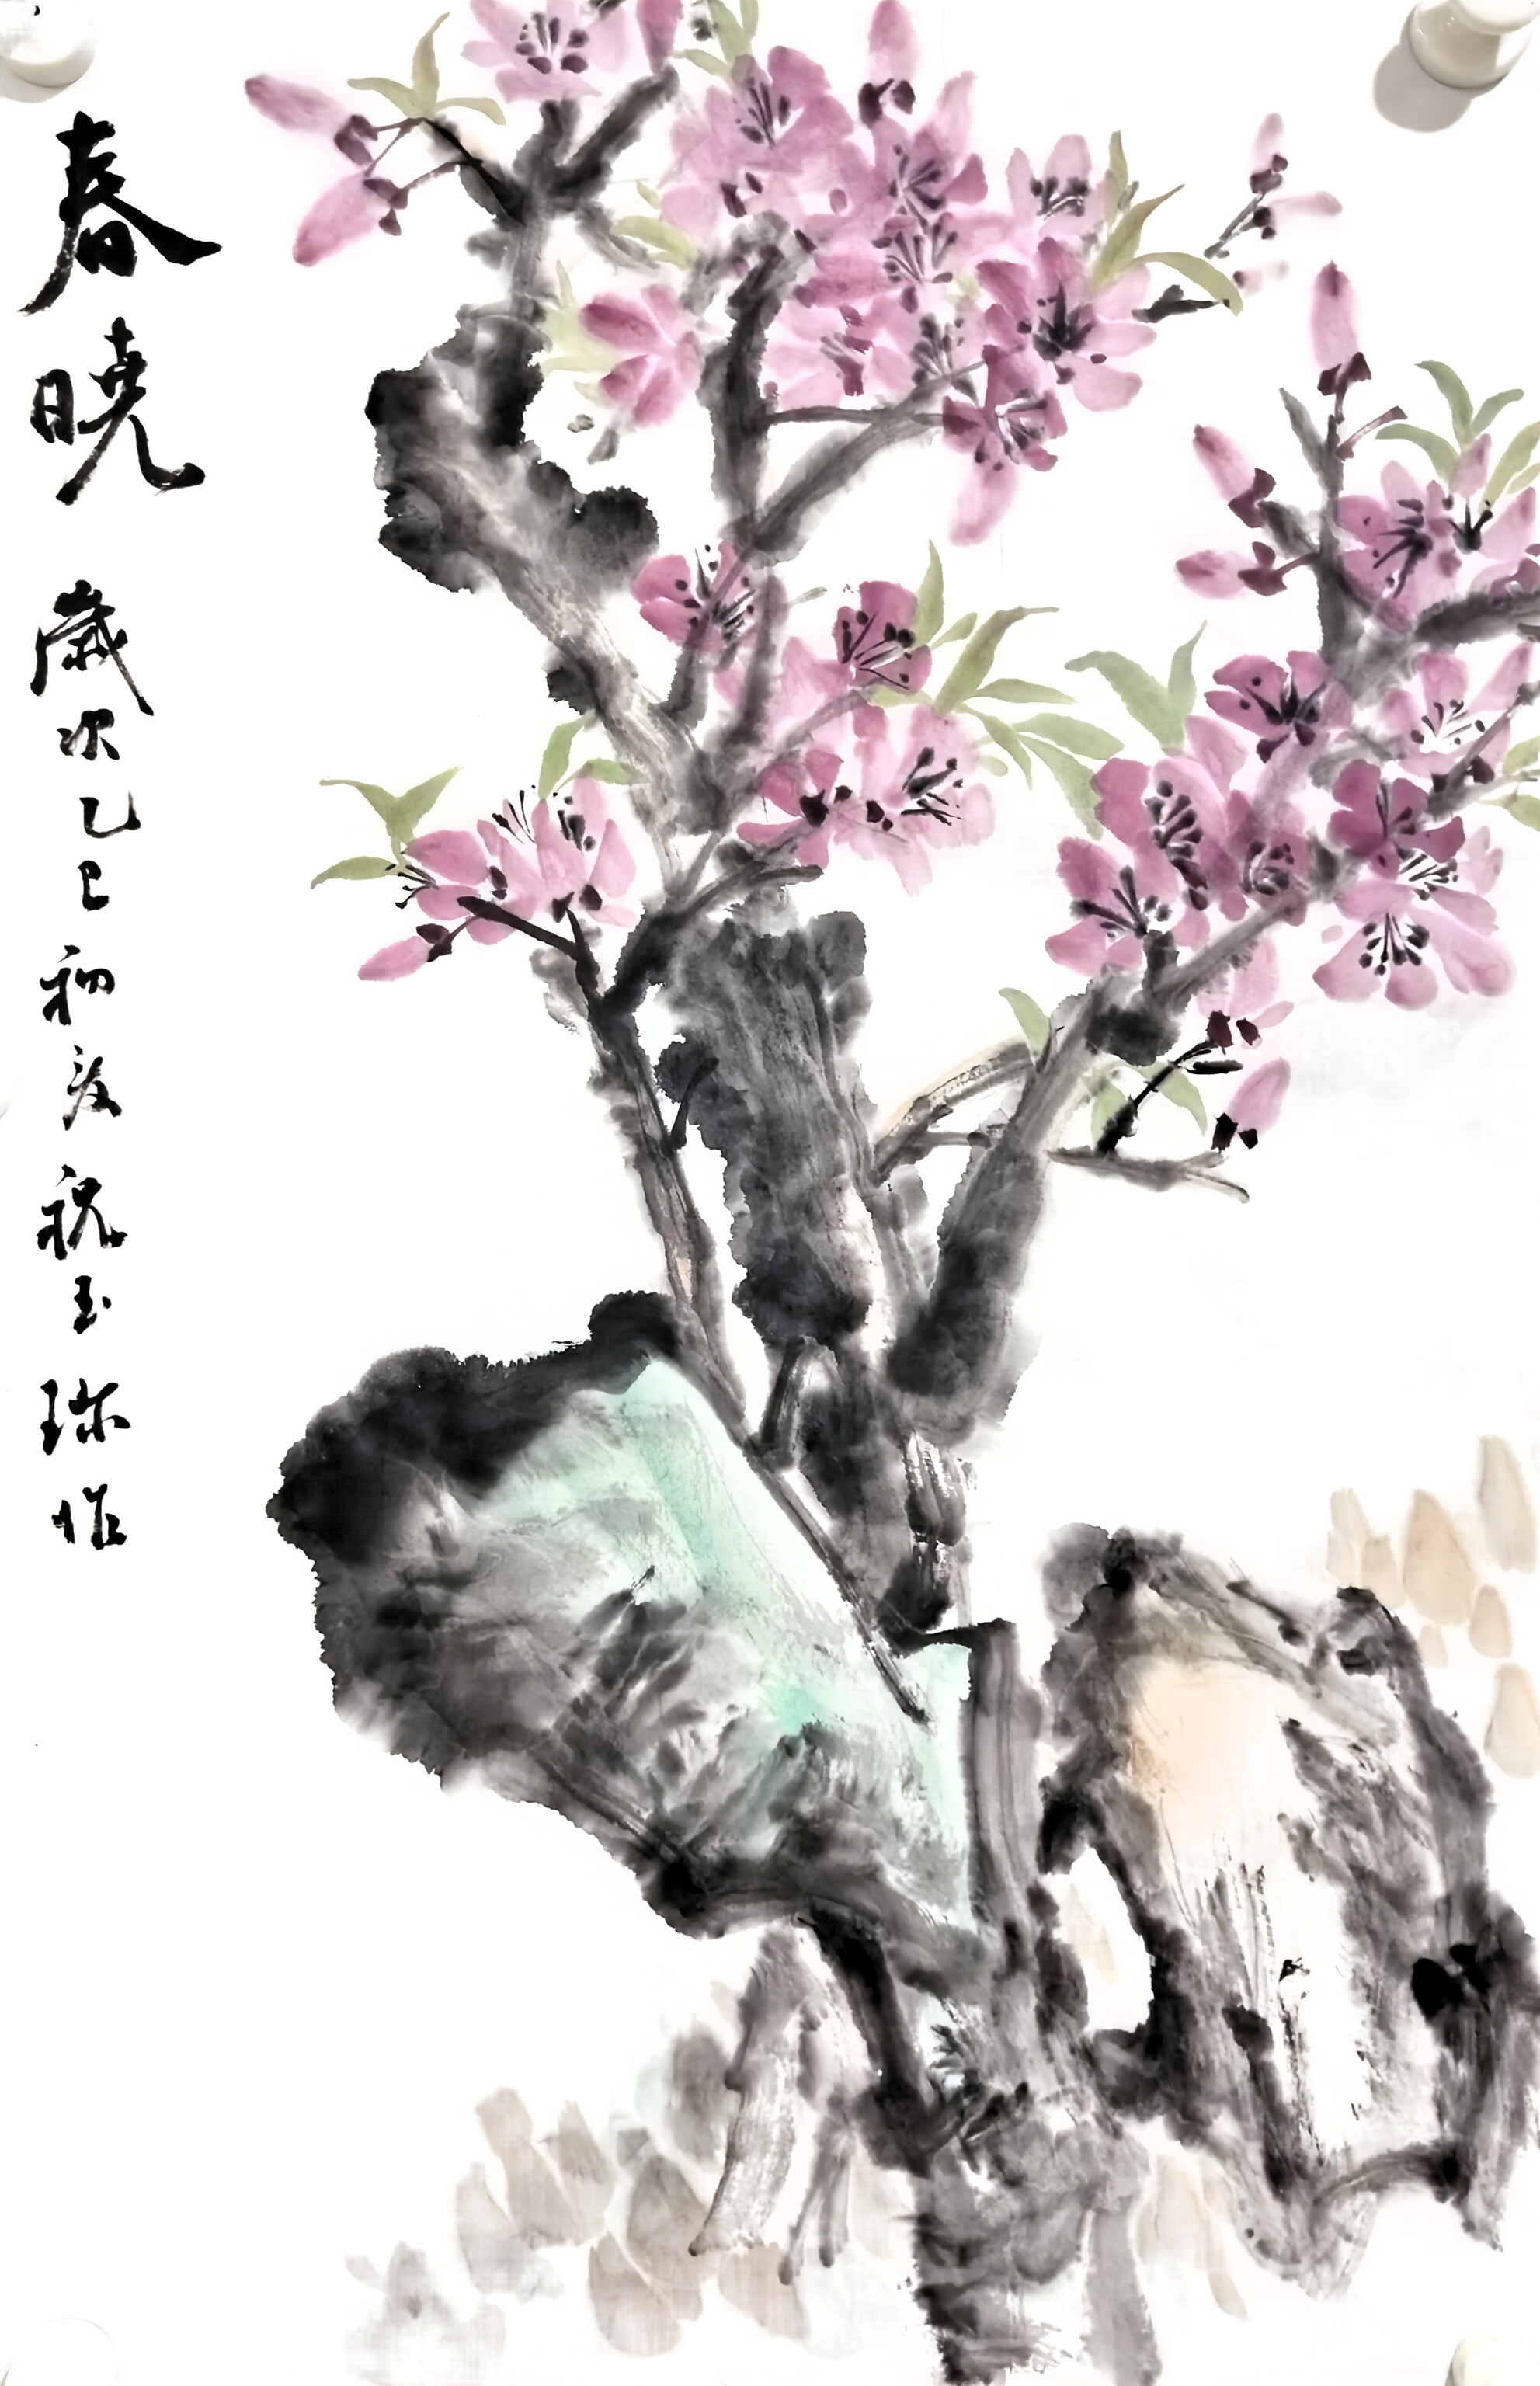 春晓 歲次乙巳初夏祝玉珎作